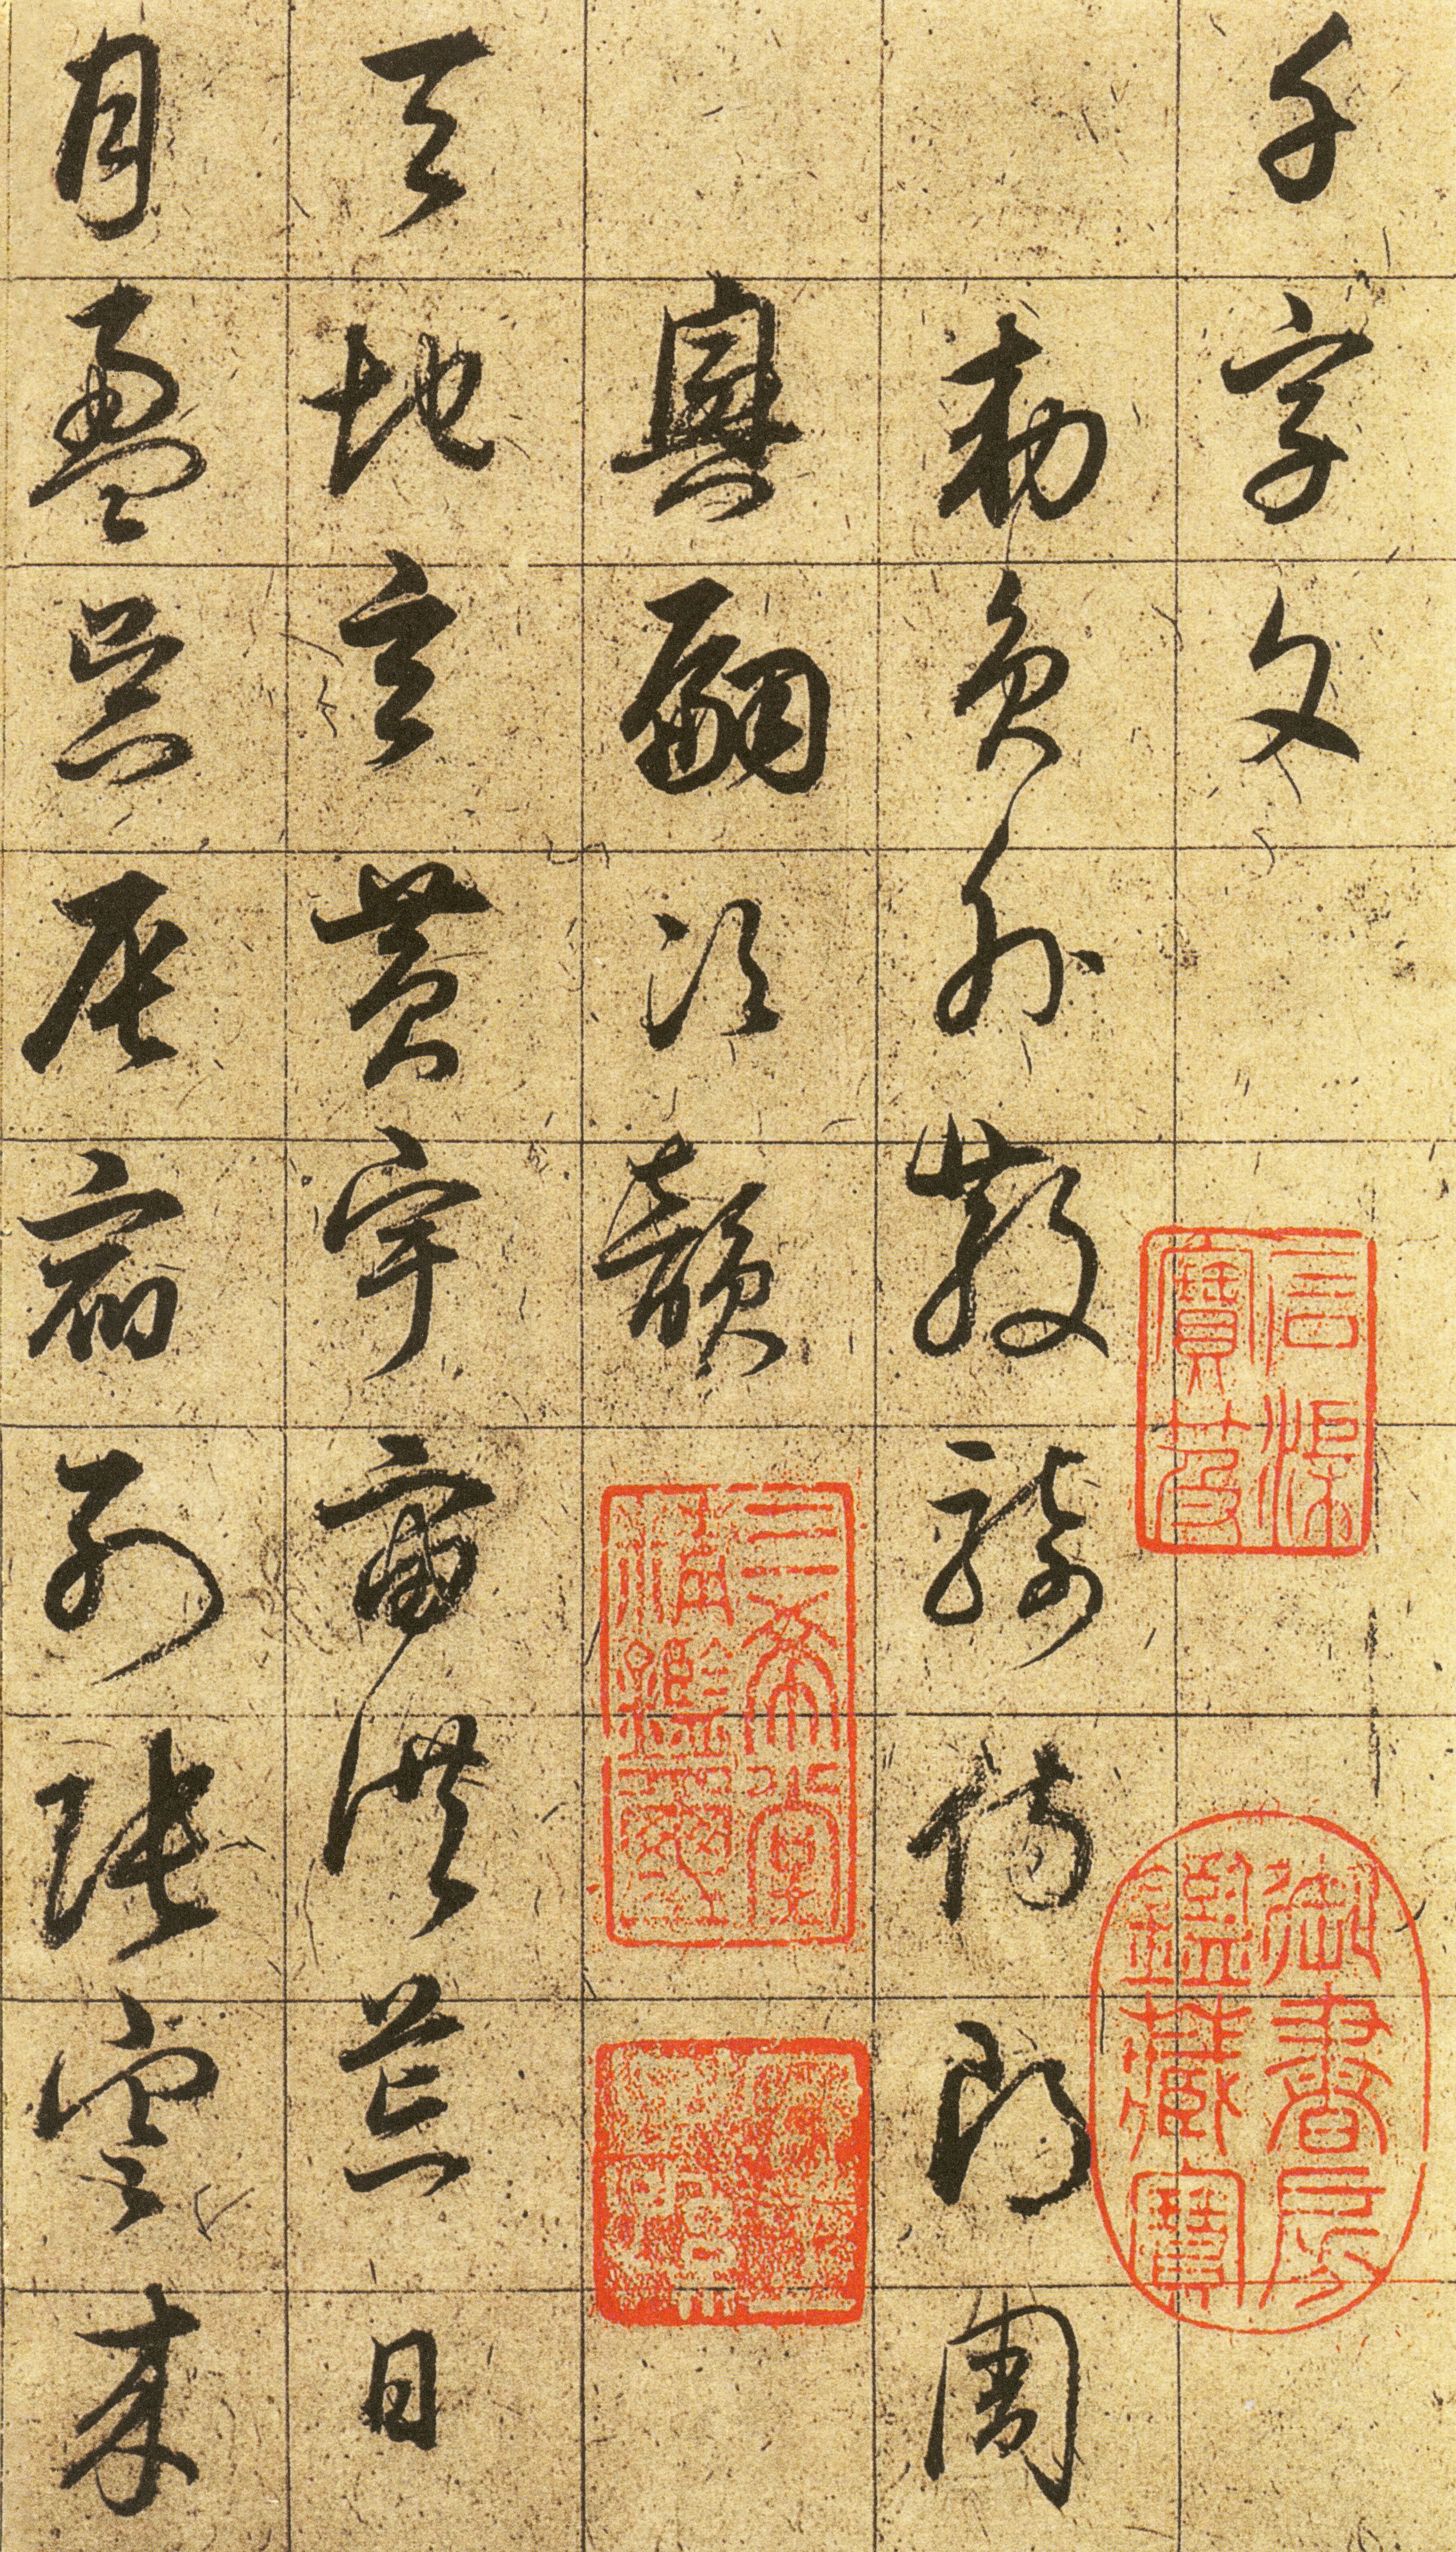 千字文
石渠寶笈
御書房鑑藏寶
勅員外散騎侍郎周
興嗣次韻
三希堂精鑑璽
天地玄黄宇宙洪荒日
月盈昃辰宿列張寒来